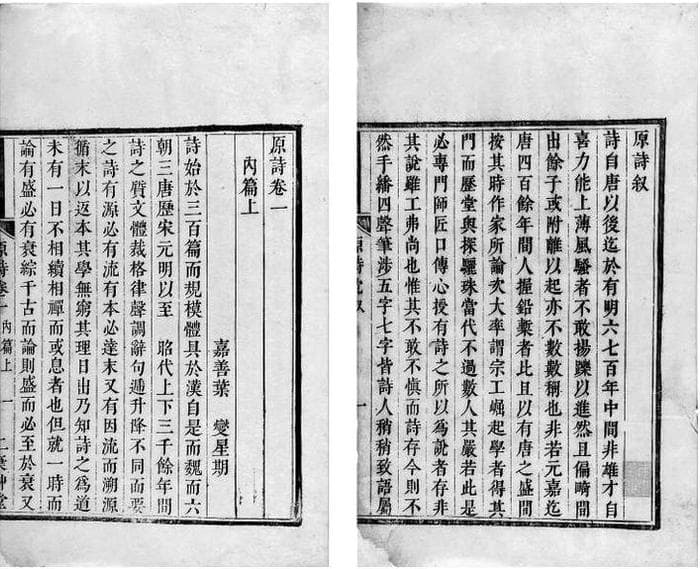 原詩叙
詩自唐以後迄於有明六七百年中間非雄才自
喜力能上薄風騷者不敢揚躒以進然且偏畸間
出餘子或附離以起亦不數數稱也非若元嘉迄
唐四百餘年間人握鉛槧者比且以有唐之盛間
按其時作家所論次大率謂宗工崛起學者得其
門而歷堂奥探驪珠當代不過數人其嚴若此是
必專門師匠口傳心授有詩之所以為詩者存非
其說雖工弗尚也惟其不敢不慎而詩存今則不
然手繙四聲筆涉五字七字皆詩人矟矟致語屬
原詩叙
一
原詩卷一
內篇上
嘉善葉 燮星期
詩始於三百篇而規模體具於漢自是而魏而六
朝三唐歷宋元明以至 昭代上下三千餘年間
詩之質文體裁格律聲調辭句遞升降不同而要
之詩有源必有流有本必達末又有因流而溯源
循末以返本其學無窮其理日出乃知詩之為道
未有一日不相續相禪而或息者也但就一時而
論有盛必有衰綜千古而論則盛而必至於衰又
原詩卷一 內篇上
一
二棄草堂